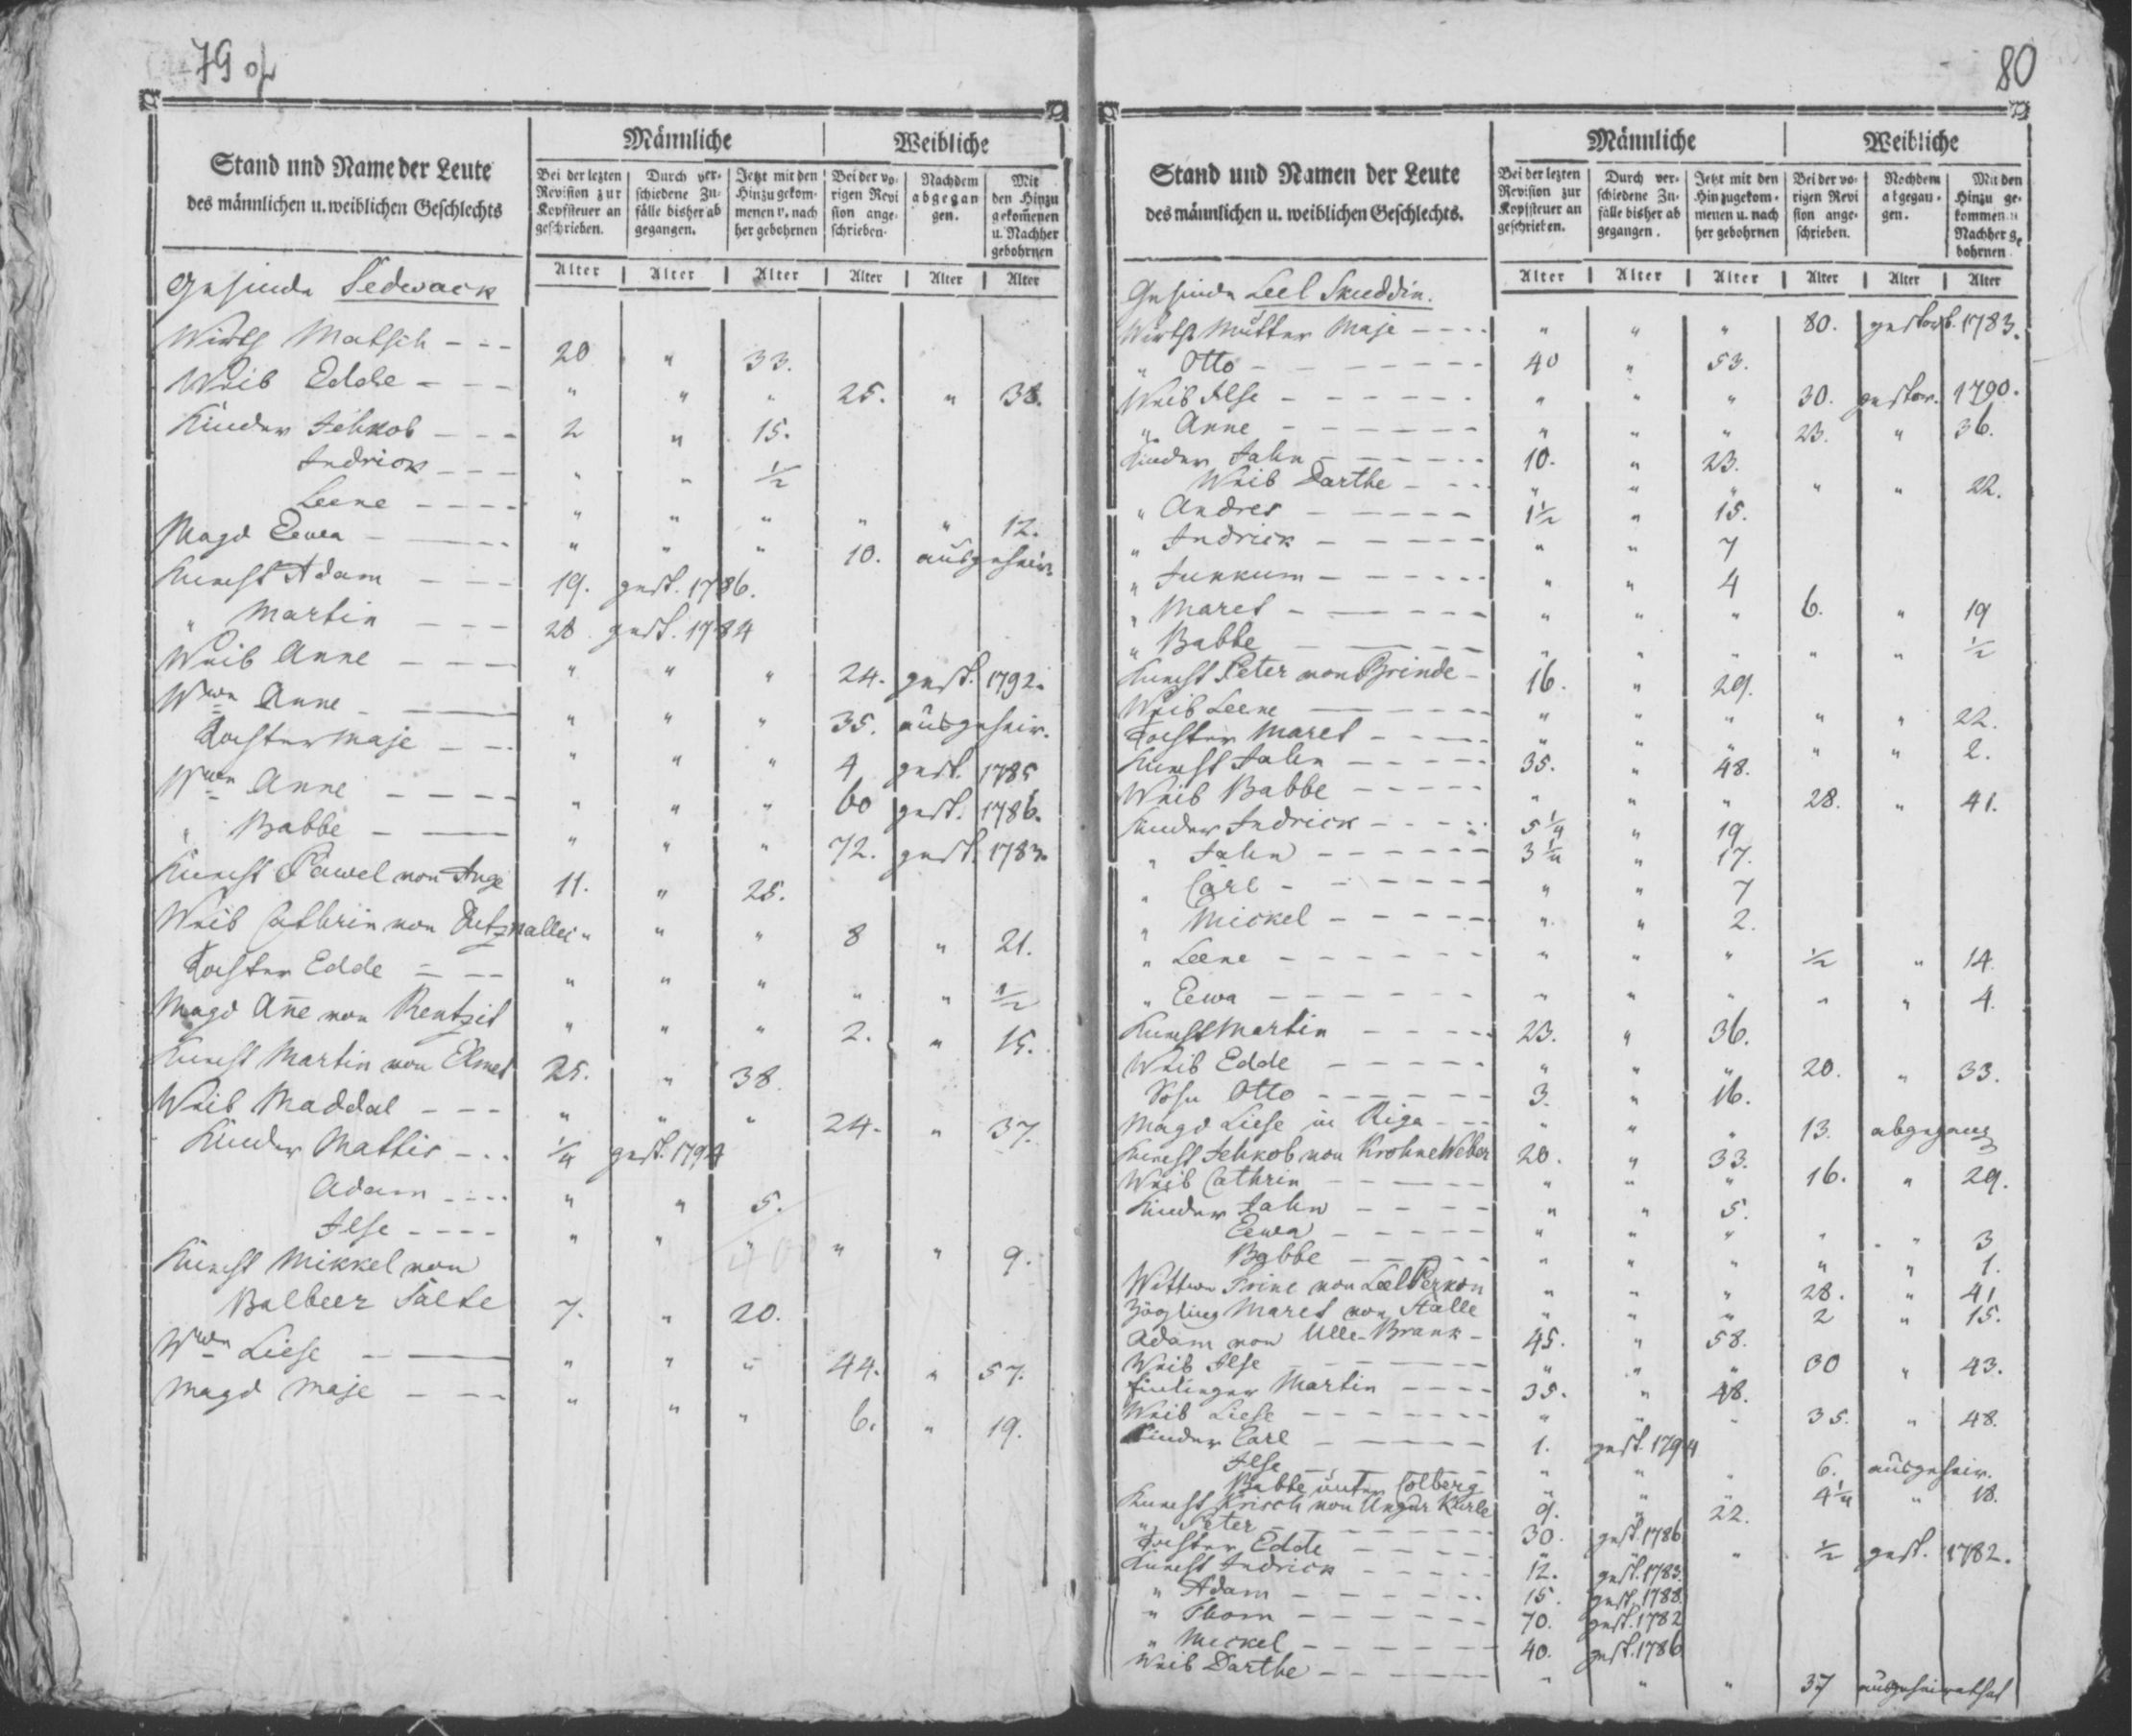 79
Stand und Name der Leute
des männlichen u. weiblichen Geschlechts
Männliche
Weibliche
Bei der lezten Revision zur Kopfsteuer an geschrieben.
Durch ver- schiedene Zu- fälle bisher ab gegangen.
Jetzt mit den Hinzu gekom- menen v. nach her gebohrnen
Bei der vo- rigen Revi sion ange- schrieben.
Nachdem abgegan gen.
Mit den Hinzu gekomenen u. Nachher gebohrnen
Alter Alter Alter Alter Alter Alter
Gesinde Sedwack
Wirth Matsch - - - 20 " 33.
Weib Edde - - - " " " 25. " 38.
Kinder Jehkob - - - 2 " 15.
Indrick - - - " " 1/2
Leene - - - - " " " " " 12.
Magd Eewa - - - " " " 10. ausgeheir.
Knecht Adam - - - 19. gest. 1786.
" Martin - - - 28. gest. 1784
Weib Anne - - - " " " 24. gest. 1792.
Wwe Anne - - " " " 35. ausgeheir.
Tochter Maje - - " " " 4 gest. 1785
Wwe Anne - - - - " " " 60 gest. 1786.
" Babbe - - " " " 72. gest. 1783.
Knecht Pawel von Ange 11. " 25.
Weib Cathrin von " " " 8 " 21.
Tochter Edde - - - " " " " " 1/2
Magd Ane von Rentzit " " " 2. " 15.
Knecht Martin von 25. " 38.
Weib Maddal - - - " " " 24. " 37.
Kinder Mattis - - - 1/4 gest. 1794
Adam - - - - " " 5.
Ilse - - - - " " " " " 9.
Knecht Mikkel von
Balbeer Salte 7. " 20.
Wwe Liese - - " " " 44. " 57.
Magd Maje - - - " " " 6. " 19.
80
Stand und Namen der Leute
des männlichen u. weiblichen Geschlechts.
Männliche
Weibliche
Bei der lezten Revision zur Kopfsteuer an geschrieben.
Durch ver- schiedene Zu- fälle bisher ab gegangen.
Jetzt mit den Hinzugekom- menen u. nach her gebohrnen
Bei der vo- rigen Revi sion ange- schrieben.
Nachdem abgegan- gen.
Mit den Hinzu ge- kommen u Nachher ge bohrnen
Alter Alter Alter Alter Alter Alter
Gesinde Leel Skuddin.
Wirths Mutter Maje - - - - " " " 80. gestorb. 1783.
" Otto - - - - - - - 40 " 53.
Weib Ilse - - - - - - " " " 30. gestor. 1790.
" Anne - - - - - - - " " " 23. " 36.
Kinder Jahn - - - - - - 10. " 23.
Weib Darthe - - - " " " " " 22.
" Andres - - - - - 1 1/2 " 15.
" Indrick - - - - - " " 7
" Jukkum - - - - - - " " 4
" Maret - - - - - " " " 6. " 19
" Babbe - - - - - " " " " " 1/2
Knecht Peter von Grinde - 16. " 29.
Weib Leene - - - - " " " " " 22.
Tochter Maret - - - - " " " " " 2.
Knecht Jahn - - - - - - 35. " 48.
Weib Babbe - - - - - " " " 28. " 41.
Kinder Indrick - - - - 5 1/4 " 19
" Jahn - - - - - - 3 1/4 " 17.
" Carl - - - - - - " " 7
" Mickel - - - - - " " 2.
" Leene - - - - - - " " " 1/2 " 14.
" Eewa - - - - - - " " " " " 4.
Knecht Martin - - - - 23. " 36.
Weib Edde - - - - - " " " 20. " 33.
Sohn Otto - - - - - - 3. " 16.
Magd Liese in Riga - - - " " " 13. abgegang
Knecht Jehkob von Krohne Weber 20. " 33.
Weib Cathrin - - - - - " " " 16. " 29.
Kinder Jahn - - - - " " 5.
Eewa - - - - - " " " " " 3
Babbe - - - - - " " " " " 1.
Wittwe Trine von Leel Perkon " " " 28. " 41
Zögling Maret von Stalle " " " 2 " 15.
Adam von Ulle-Brank - 45. " 58.
Weib Ilse - - - - " " " 30 " 43.
Einlieger Martin - - - - 35. " 48.
Weib Liese - - - - - - - " " " 35. " 48.
Kinder Carl - - - - - 1. gest. 1794
Ilse - - - - - - " " " 6. ausgeheir.
Babbe unter Colberg " " " 4 1/4 " 18.
Knecht Krisch von Ungur Karle 9. " 22.
" Peter - - - - - - 30. gest. 1786
Tochter Edde - - - - " " " 1/2 gest. 1782.
Knecht Indrick - - - - - 12. gest. 1783.
" Adam - - - - - - 15. gest. 1788.
" Thom - - - - - - 70. gest. 1782
" Mickel - - - - - - 40. gest. 1786
Weib Darthe - - - - - " " " 37 ausgeheirathet